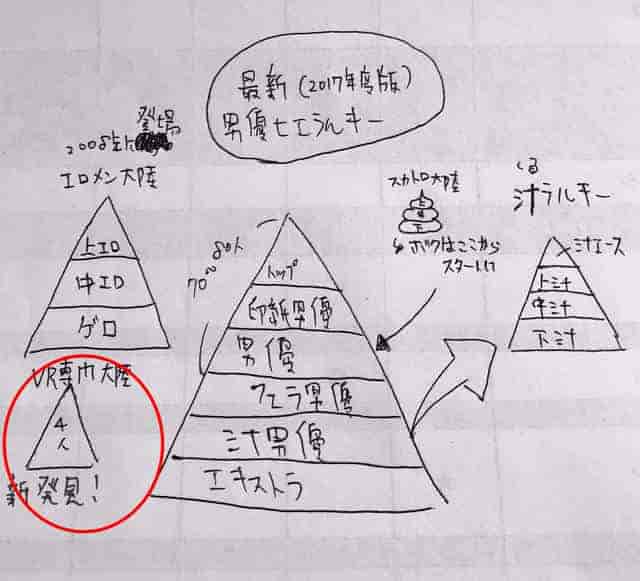 最新(2017年度版)
男優ヒエラルキー
2008年に登場
エロメン大陸
上エロ
中エロ
ゲロ
VR専門大陸
4人
新発見!
70~80人
トップ
印新男優
男優
フェラ男優
汁男優
エキストラ
スカトロ大陸
上
中
下
ボクはここから
スタートした
しる
汁ラルキー
汁エース
上汁
中汁
下汁